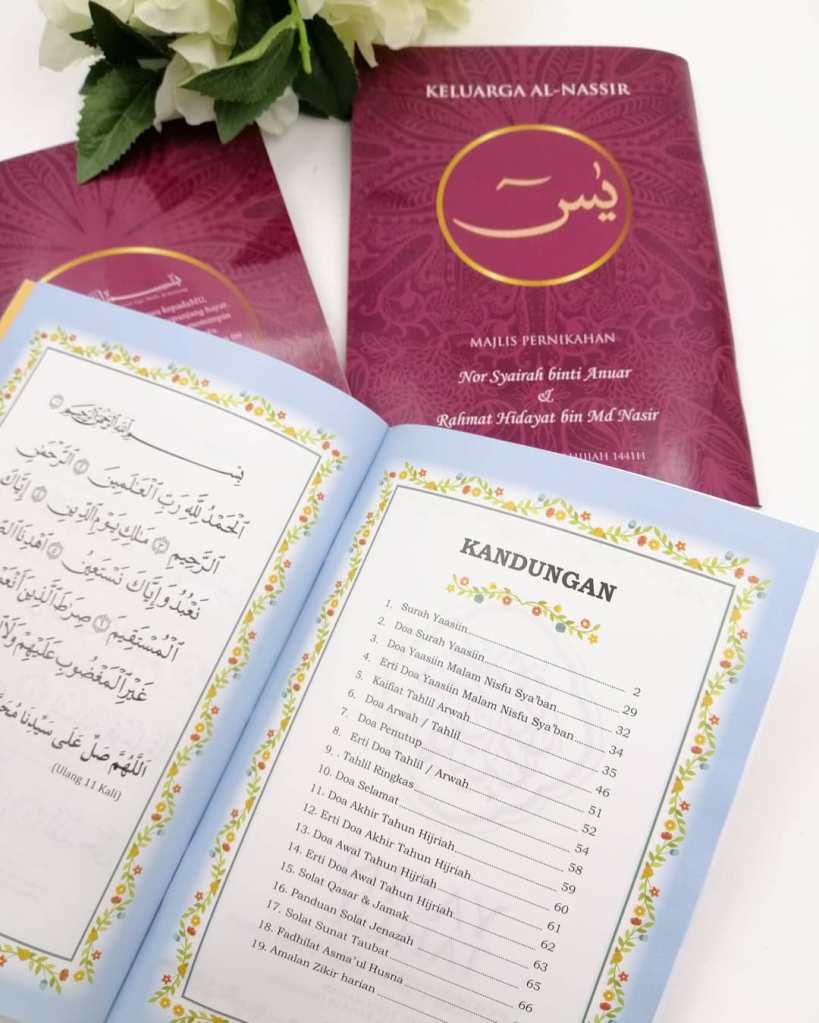 KELUARGA AL-NASSIR
يسٓ
MAJLIS PERNIKAHAN
Nor Syairah binti Anuar
&
Rahmat Hidayat bin Md Nasir
1441H
kepadaMU,
panjang hayat.
بِسْمِ اللَّهِ الرَّحْمَٰنِ الرَّحِيمِ ١
ٱلْحَمْدُ لِلَّهِ رَبِّ ٱلْعَٰلَمِينَ ٢ ٱلرَّحْمَٰنِ
ٱلرَّحِيمِ ٣ مَٰلِكِ يَوْمِ ٱلدِّينِ ٤ إِيَّاكَ
نَعْبُدُ وَإِيَّاكَ نَسْتَعِينُ ٥ ٱهْدِنَا
ٱلْمُسْتَقِيمَ ٦ صِرَٰطَ ٱلَّذِينَ
غَيْرِ ٱلْمَغْضُوبِ عَلَيْهِمْ وَلَا
اَللّٰهُمَّ صَلِّ عَلَى سَيِّدِنَا
(Ulang 11 Kali)
KANDUNGAN
1. Surah Yaasiin 2
2. Doa Surah Yaasiin 29
3. Doa Yaasiin Malam Nisfu Sya'ban 32
4. Erti Doa Yaasiin Malam Nisfu Sya'ban 34
5. Kaifiat Tahlil Arwah 35
6. Doa Arwah / Tahlil 46
7. Doa Penutup 51
8. Erti Doa Tahlil / Arwah 52
9. . Tahlil Ringkas 54
10. Doa Selamat 58
11. Doa Akhir Tahun Hijriah 59
12. Erti Doa Akhir Tahun Hijriah 60
13. Doa Awal Tahun Hijriah 61
14. Erti Doa Awal Tahun Hijriah 62
15. Solat Qasar & Jamak 63
16. Panduan Solat Jenazah 65
17. Solat Sunat Taubat 66
18. Fadhilat Asma'ul Husna
19. Amalan Zikir harian